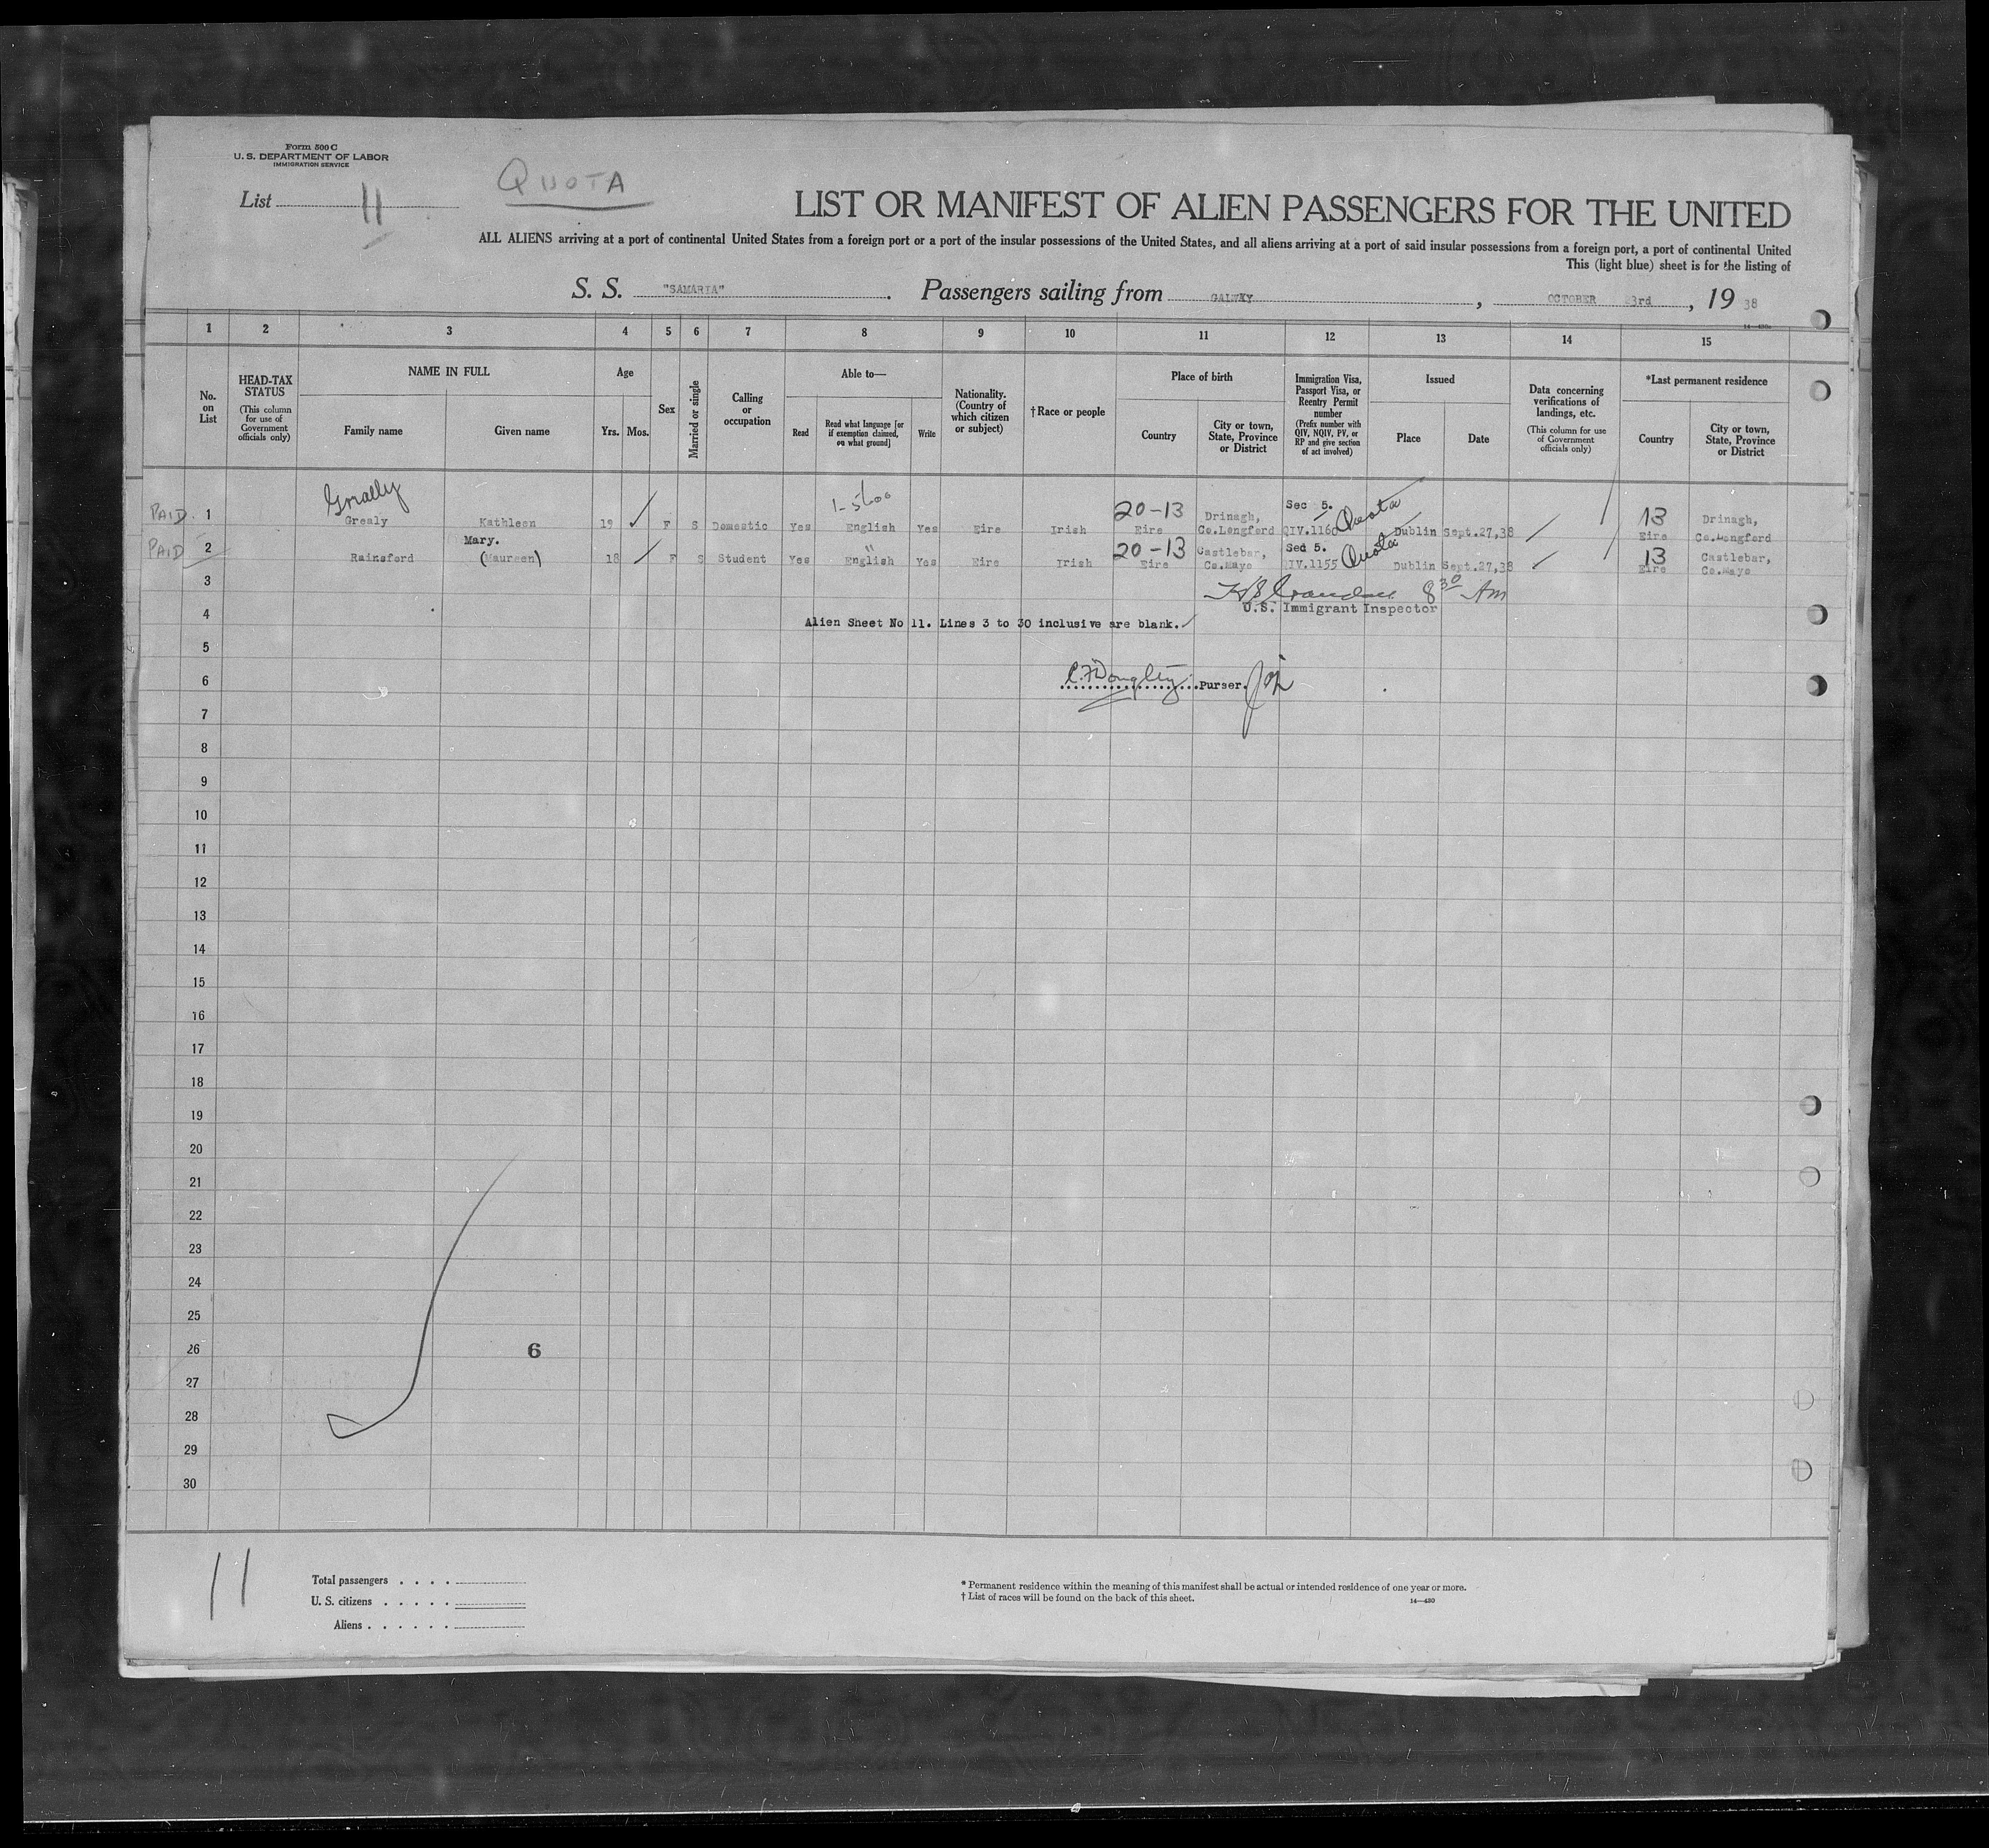 Form 500 C
U. S. DEPARTMENT OF LABOR
IMMIGRATION SERVICE
List 11
QUOTA
LIST OR MANIFEST OF ALIEN PASSENGERS FOR THE UNITED
ALL ALIENS arriving at a port of continental United States from a foreign port or a port of the insular possessions of the United States, and all aliens arriving at a port of said insular possessions from a foreign port, a port of continental United
This (light blue) sheet is for the listing of
S. S. "SAMARIA". Passengers sailing from GALWAY, OCTOBER 23rd, 19 38
1 2 3 4 5 6 7 8 9 10 11 12 13 14 15
No. on List
HEAD-TAX STATUS
(This column for use of Government officials only)
NAME IN FULL
Family name
Given name
Age
Yrs. Mos.
Sex
Married or single
Calling or occupation
Able to—
Read
Read what language [or if exemption claimed, on what ground]
Write
Nationality. (Country of which citizen or subject)
†Race or people
Place of birth
Country
City or town, State, Province or District
Immigration Visa, Passport Visa, or Reentry Permit number
(Prefix number with QIV, NQIV, PV, or RP and give section of act involved)
Issued
Place
Date
Data concerning verifications of landings, etc.
(This column for use of Government officials only)
*Last permanent residence
Country
City or town, State, Province or District
Grally 20-13 Sec 5. Quota 13
PAID 1 Grealy Kathleen 19 F S Domestic Yes English Yes Eire Irish Eire Drinagh, Co.Longford QIV.1160 Dublin Sept.27,38 Eire Drinagh, Co.Longford
Mary. " 20-13 Sec 5. Quota 13
PAID 2 Rainsford (Maureen) 18 F S Student Yes English Yes Eire Irish Eire Castlebar, Co.Mayo QIV.1155 Dublin Sept.27,38 Eire Castlebar, Co.Mayo
3
8 30 Am
U.S. Immigrant Inspector
4
Alien Sheet No 11. Lines 3 to 30 inclusive are blank.
5
6
Purser.
7
8
9
10
11
12
13
14
15
16
17
18
19
20
21
22
23
24
25
26
6
27
28
29
30
11
Total passengers . . . .
U. S. citizens . . . . .
Aliens . . . . . .
* Permanent residence within the meaning of this manifest shall be actual or intended residence of one year or more.
† List of races will be found on the back of this sheet.
14—430